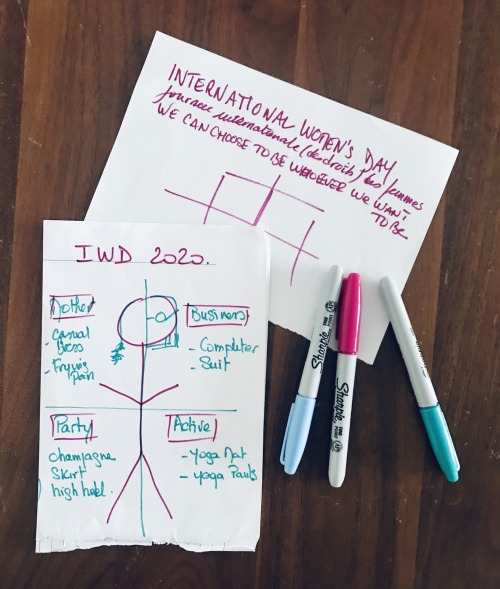 INTERNATIONAL WOMEN'S DAY
journée internationale (des droits) des femmes
WE CAN CHOOSE TO BE WHOEVER WE WANT
TO BE
IWD 2020.
Mother
- Casual
Dress
- Frying
Pan
Business
- Computer
- Suit
Party
champagne
Skirt
high heel.
Active
- Yoga Mat
- Yoga Pants
Sharpie
Sharpie